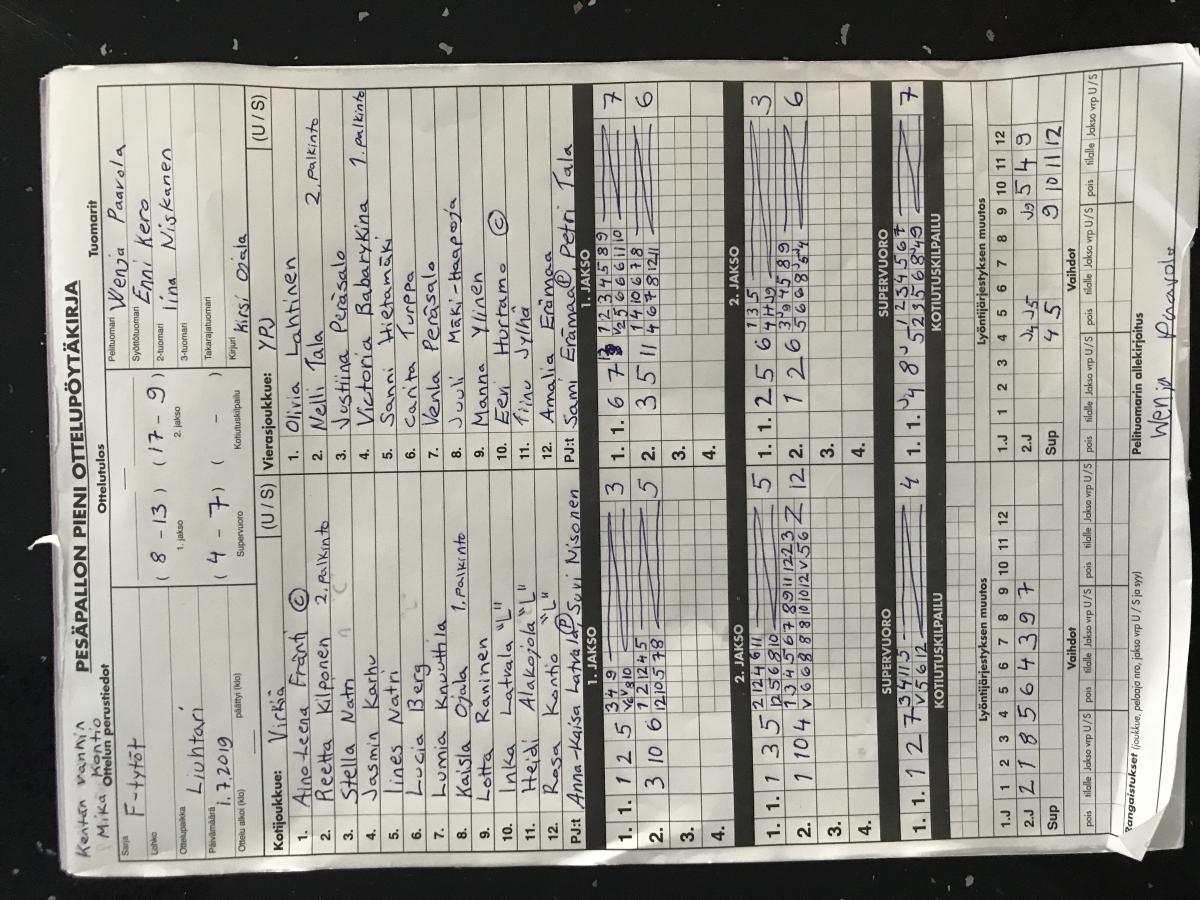 Kentän vanhin
Mika Kontio
PESÄPALLON PIENI OTTELUPÖYTÄKIRJA
Ottelun perustiedot
Ottelutulos
Tuomarit
Sarja
F-tytöt
Lohko
Ottelupaikka
Liuhtari
Päivämäärä
1.7.2019
Ottelu alkoi (klo)
päättyi (klo)
( 8 - 13 ) ( 17 - 9 )
1. jakso
2. jakso
( 4 - 7 ) ( - )
Supervuoro
Kotiutuskilpailu
Pelituomari Wenja Paavola
Syöttötuomari Enni Kero
2-tuomari Iina Niskanen
3-tuomari
Takarajatuomari
Kirjuri Kirsi Ojala
Kotijoukkue: Virkiä (U / S)
1. Aino-Leena Fränti ©
2. Reetta Kilponen 2. palkinto
3. Stella Natri
4. Jasmin Karhu
5. Iines Natri
6. Lucia Berg
7. Lumia Knuuttila
8. Kaisla Ojala 1. palkinto
9. Lotta Raninen
10. Inka Latvala "L"
11. Heidi Alakojola "L"
12. Rasa Kontio "L"
PJ:t Anna-Kaisa Latvala, Suvi Nisonen
Vierasjoukkue: YPJ (U / S)
1. Olivia Lahtinen
2. Nelli Tala 2. palkinto
3. Justiina Peräsalo
4. Victoria Babarykina 1. palkinto
5. Sanni Hietamäki
6. Carita Turppa
7. Venla Peräsalo
8. Juuli Mäki-Haapoja
9. Manna Ylinen
10. Eevi Hurtamo ©
11. Tiinu Jylhä
12. Amalia Erämaa
PJ:t Sami Erämaa Ⓟ Petri Tala
1. JAKSO
1. 1. 1 2 5 3 4 9 3
V6 V8 10
2. 3 10 6 1 2 12 4 5 5
12 10 5 7 8
3.
4.
2. JAKSO
1. 1. 1 3 5 2 12 4 6 11 5
12 5 6 8 10
2. 1 10 4 1 3 4 5 6 7 8 9 11 12 2 3 12
V 6 6 8 8 8 10 10 12 V 5 6
3.
4.
SUPERVUORO
1. 1. 1 2 7 3 4 11 5 4
V 5 6 12
KOTIUTUSKILPAILU
1. JAKSO
1. 1. 6 7 1 1 2 3 4 5 8 9 7
V2 5 6 6 6 11 10
2. 3 5 11 1 4 10 6 7 8 6
4 6 7 8 12 11
3.
4.
2. JAKSO
1. 1. 2 5 6 1 3 5 3
2. 1 2 6 6
3.
4.
SUPERVUORO
1. 1. 4 8 7
KOTIUTUSKILPAILU
Lyöntijärjestyksen muutos
1.J 1 2 3 4 5 6 7 8 9 10 11 12
2.J 2 1 8 5 6 4 3 9 7
Sup
Vaihdot
pois tilalle Jakso vrp U / S pois tilalle Jakso vrp U / S pois tilalle Jakso vrp U / S
Lyöntijärjestyksen muutos
1.J 1 2 3 4 5 6 7 8 9 10 11 12
2.J J4 J5 J9 5 4 9
Sup 4 5 9 10 11 12
Vaihdot
pois tilalle Jakso vrp U / S pois tilalle Jakso vrp U / S pois tilalle Jakso vrp U / S
Rangaistukset (joukkue, pelaaja nro, jakso vrp U / S ja syy)
Pelituomarin allekirjoitus
Wenja Paavola